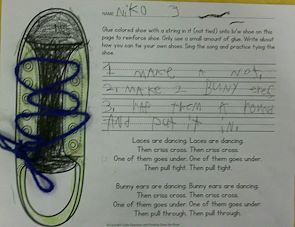 NAME NiKO 3
Glue colored shoe with a string in it (not tied) onto b/w shoe on this
page to reinforce shoe. Only use a small amount of glue. Write about
how you can tie your own shoes. Sing the song and practice tying the
shoe.
1. MaKE a Not,
2. MAKE 2 BUNY eres
3, raP them A rowNd
AND put it iN.
Laces are dancing. Laces are dancing.
Then criss cross. Then criss cross.
One of them goes under. One of them goes under.
Then pull tight. Then pull tight.
Bunny ears are dancing. Bunny ears are dancing.
Then criss cross. Then criss cross.
One of them goes under. One of them goes under.
Then pull through. Then pull through.